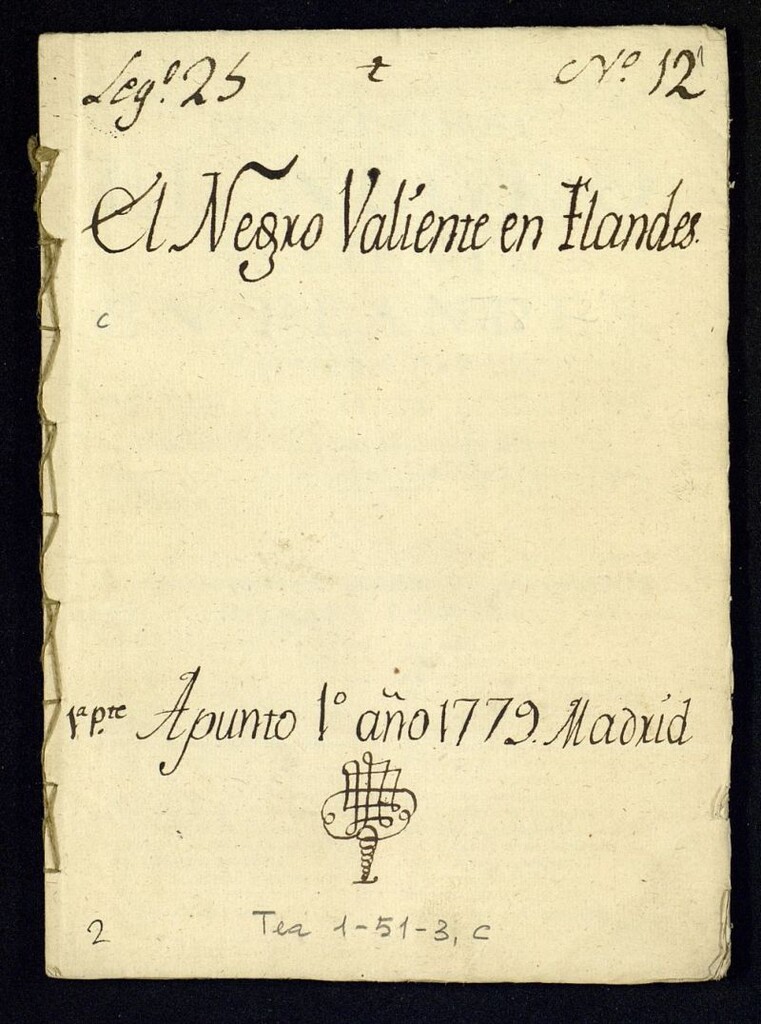 Leg.º 25 + Nº 12
El Negro Valiente en Flandes.
c
1ª p.te Apunto 1º año 1779. Madrid
2 Tea 1-51-3, c